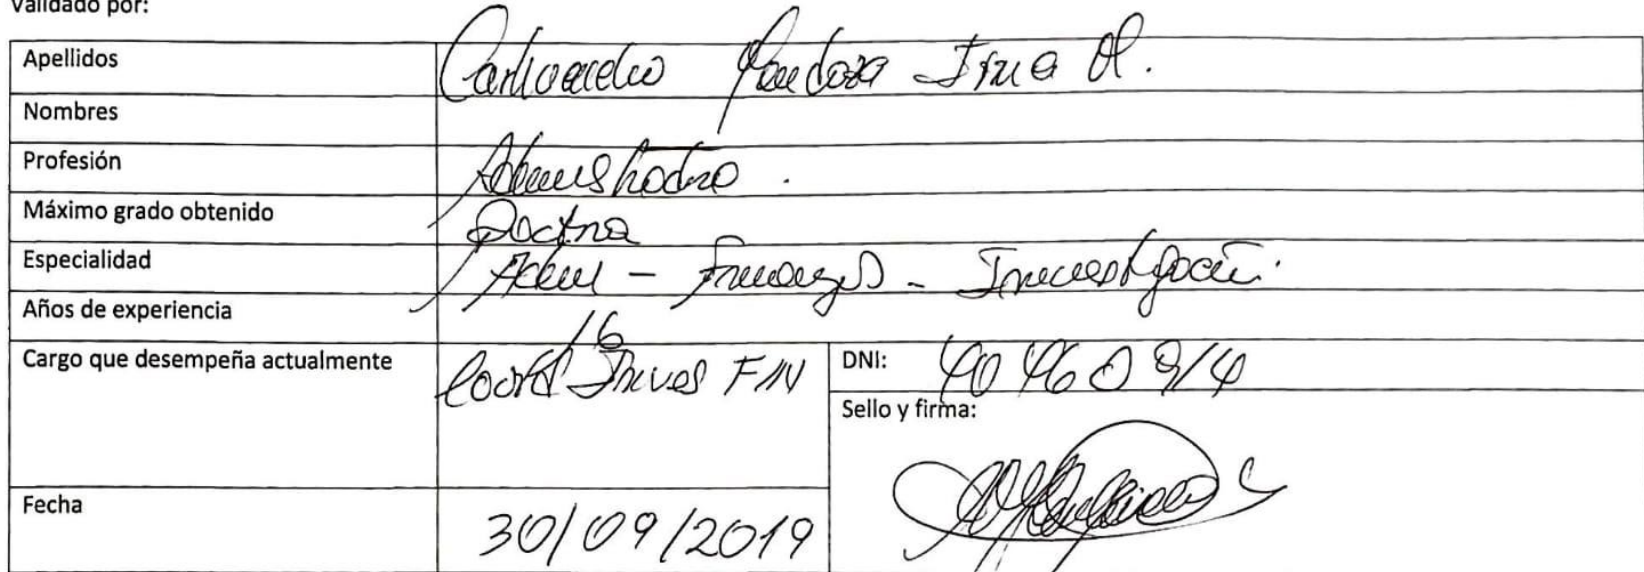 Validado por:
Apellidos Carhuancho Mendoza Irma M.
Nombres
Profesión Administradora.
Máximo grado obtenido Doctora
Especialidad Adm - Finanzas - Investigación.
Años de experiencia 16
Cargo que desempeña actualmente Coord Inves FIN
DNI: 40460914
Sello y firma:
Fecha 30/09/2019